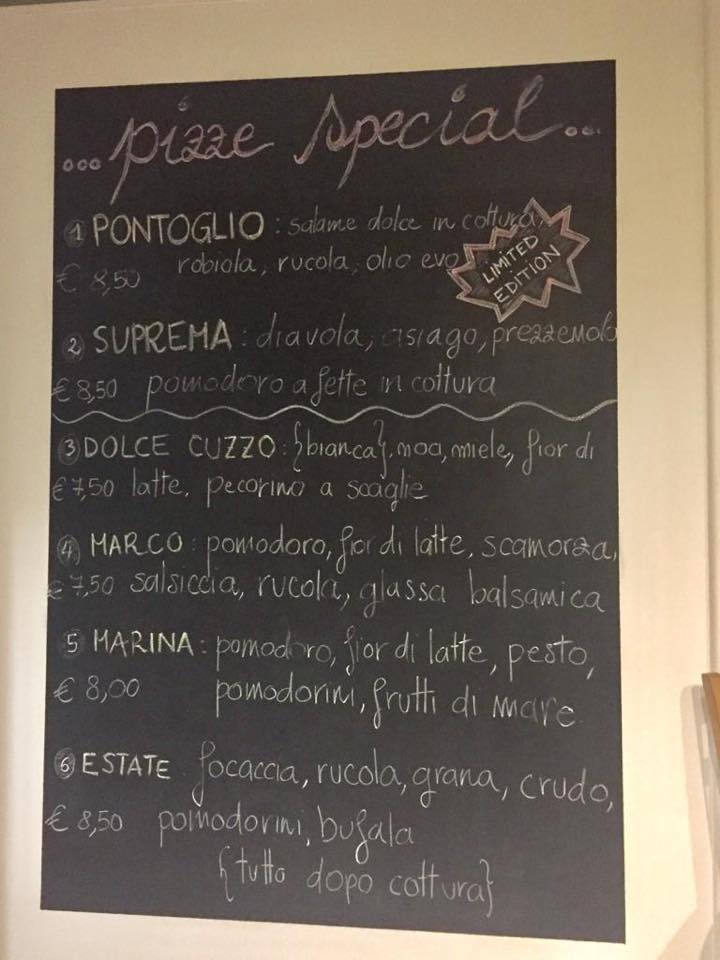 ...pizze special...
1 PONTOGLIO: salame dolce in cottura,
robiola, rucola, olio evo
€ 8,50
LIMITED
EDITION
2 SUPREMA: diavola, asiago, prezzemolo
€ 8,50 pomodoro a fette in cottura
3 DOLCE CUZZO: {bianca}, noci, miele, fior di
€ 7,50 latte, pecorino a scaglie
4 MARCO: pomodoro, fior di latte, scamorza,
€ 7,50 salsiccia, rucola, glassa balsamica
5 MARINA: pomodoro, fior di latte, pesto,
€ 8,00 pomodorini, frutti di mare
6 ESTATE focaccia, rucola, grana, crudo,
€ 8,50 pomodorini, bufala
{tutto dopo cottura}